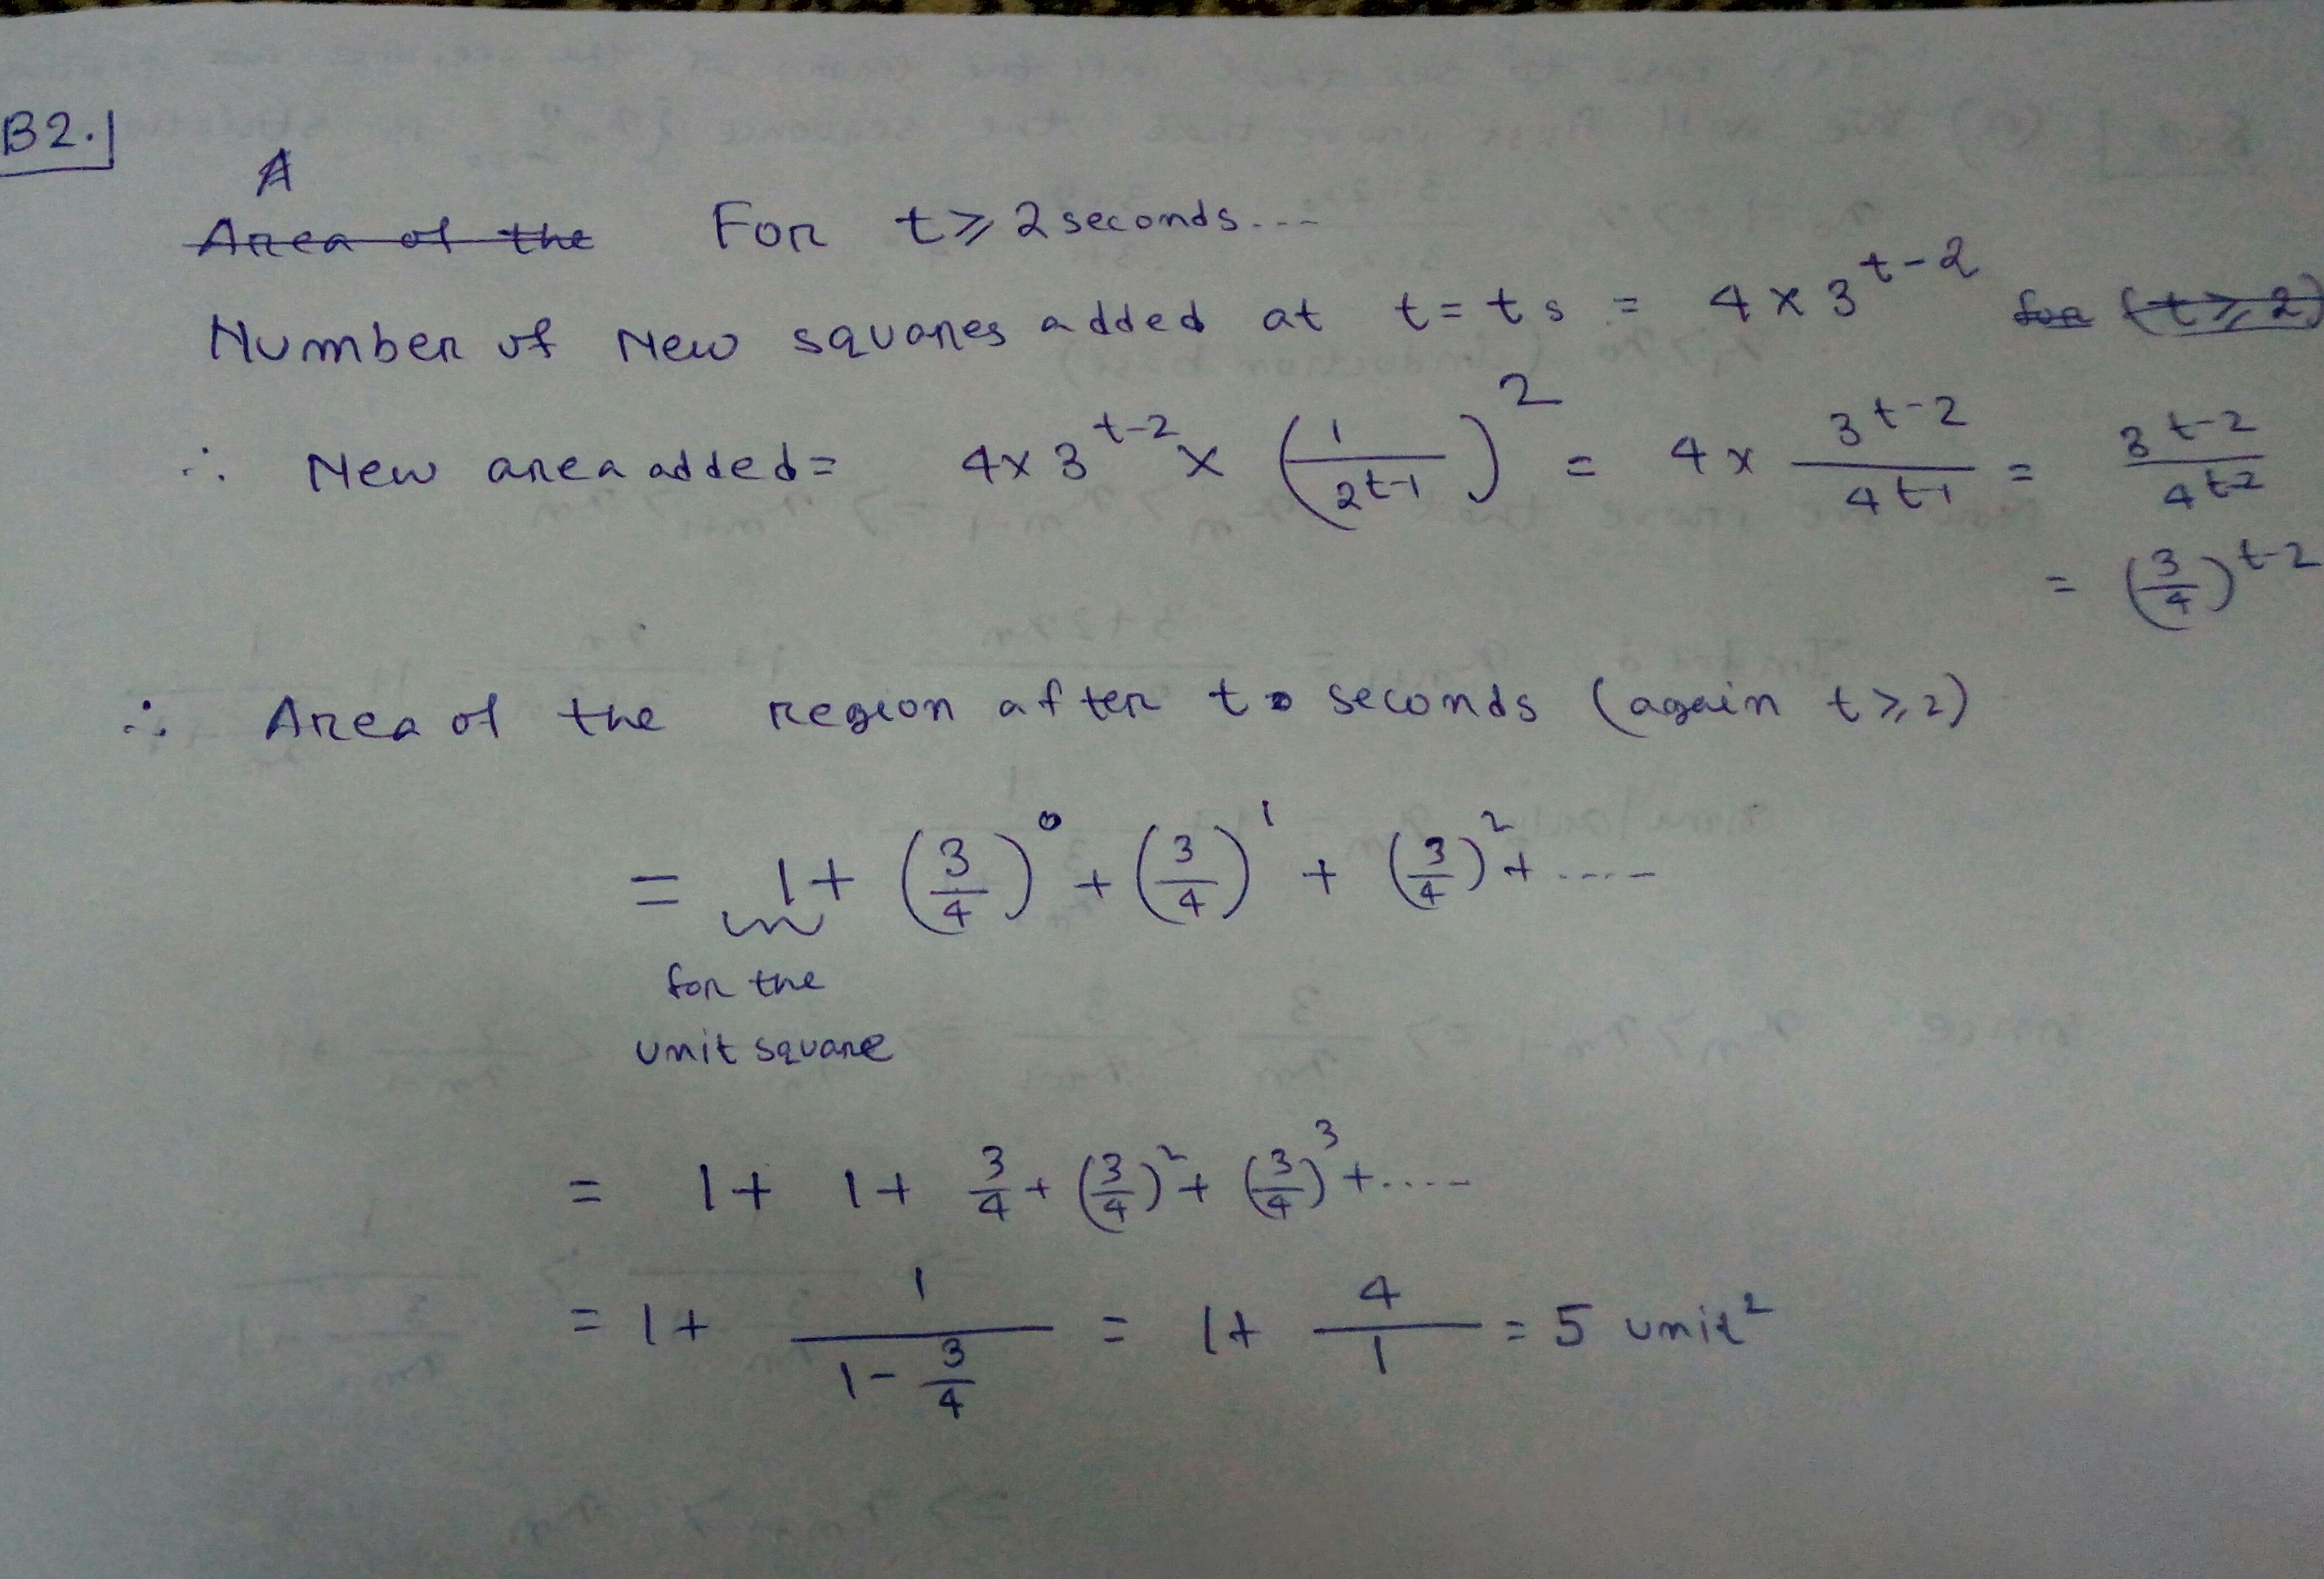 B2.
A
Area of the For t ≥ 2 seconds...
Number of New squares added at t = t s = 4 × 3^(t-2) for (t ≥ 2)
∴ New area added = 4 × 3^(t-2) × (1/2^(t-1))^2 = 4 × 3^(t-2)/4^(t-1) = 3^(t-2)/4^(t-2)
= (3/4)^(t-2)
∴ Area of the region after t seconds (again t ≥ 2)
= 1 + (3/4)^0 + (3/4)^1 + (3/4)^2 + ....
for the
unit square
= 1 + 1 + 3/4 + (3/4)^2 + (3/4)^3 + .....
= 1 + 1/(1 - 3/4) = 1 + 4/1 = 5 unit^2